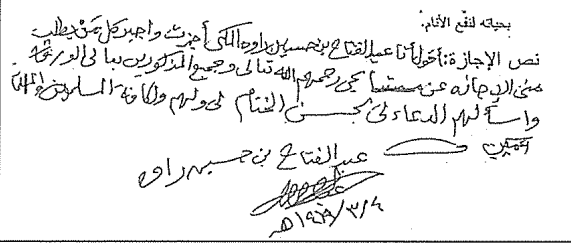 بحياته لنفع الأنام.
نص الإجازة: أقول أنا عبد الفتاح بن حسين راوه المكي أجزت وأجيز كل من يطلب
مني الإجازة عن مشايخي رحمهم الله تعالى وجميع المذكورين
وأسألهم الدعاء لي بحسن الختام لي ولهم ولكافة المسلمين
آمين
عبد الفتاح بن حسين راوه
١٤٠٩/٣/٤هـ